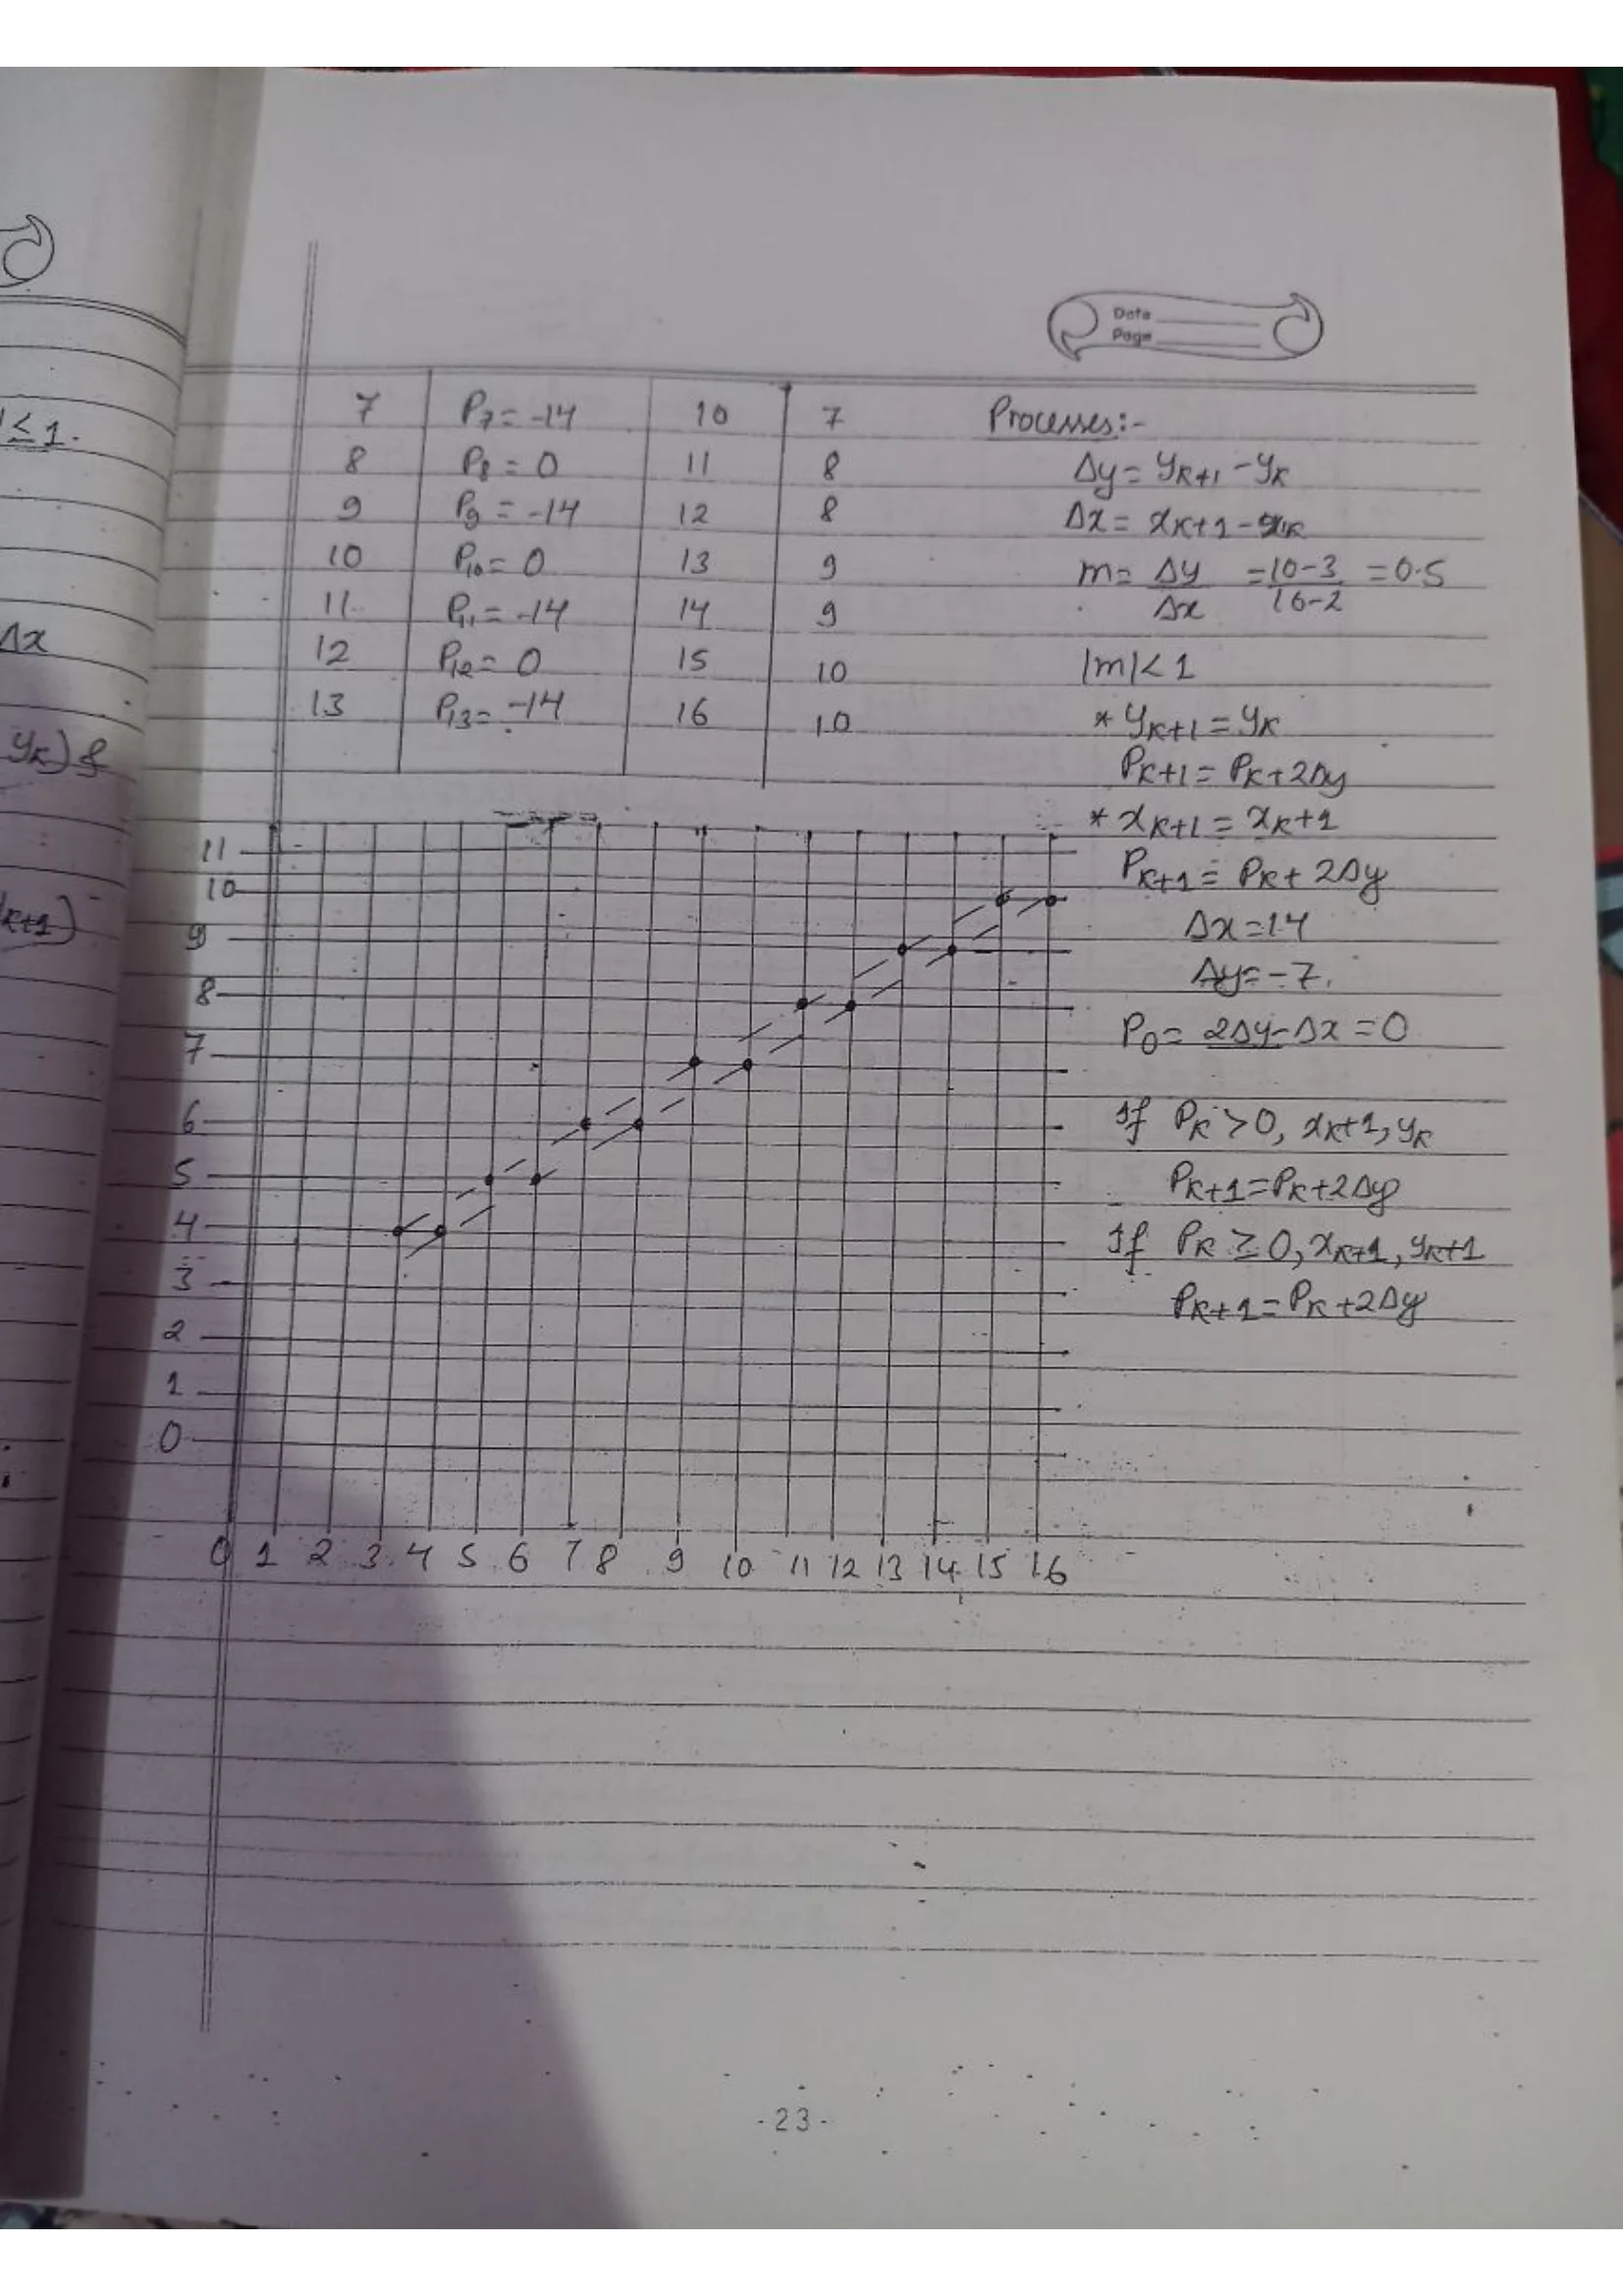 Date
Page
7 P7 = -14 10 7
8 P8 = 0 11 8
9 P9 = -14 12 8
10 P10 = 0 13 9
11 P11 = -14 14 9
12 P12 = 0 15 10
13 P13 = -14 16 10
Processes:-
Δy = yK+1 - yK
Δx = xK+1 - xK
m = Δy/Δx = 10-3/16-2 = 0.5
|m| < 1
* yK+1 = yK
PK+1 = PK + 2Δy
* xK+1 = xK+1
PK+1 = PK + 2Δy
Δx = 14
Δy = -7.
P0 = 2Δy - Δx = 0
If PK > 0, xK+1, yK
PK+1 = PK + 2Δy
If PK ≥ 0, xK+1, yK+1
PK+1 = PK + 2Δy
11
10
9
8
7
6
5
4
3
2
1
0
0 1 2 3 4 5 6 7 8 9 10 11 12 13 14 15 16
≤ 1.
Δx
yK) &
K+1)
-23-